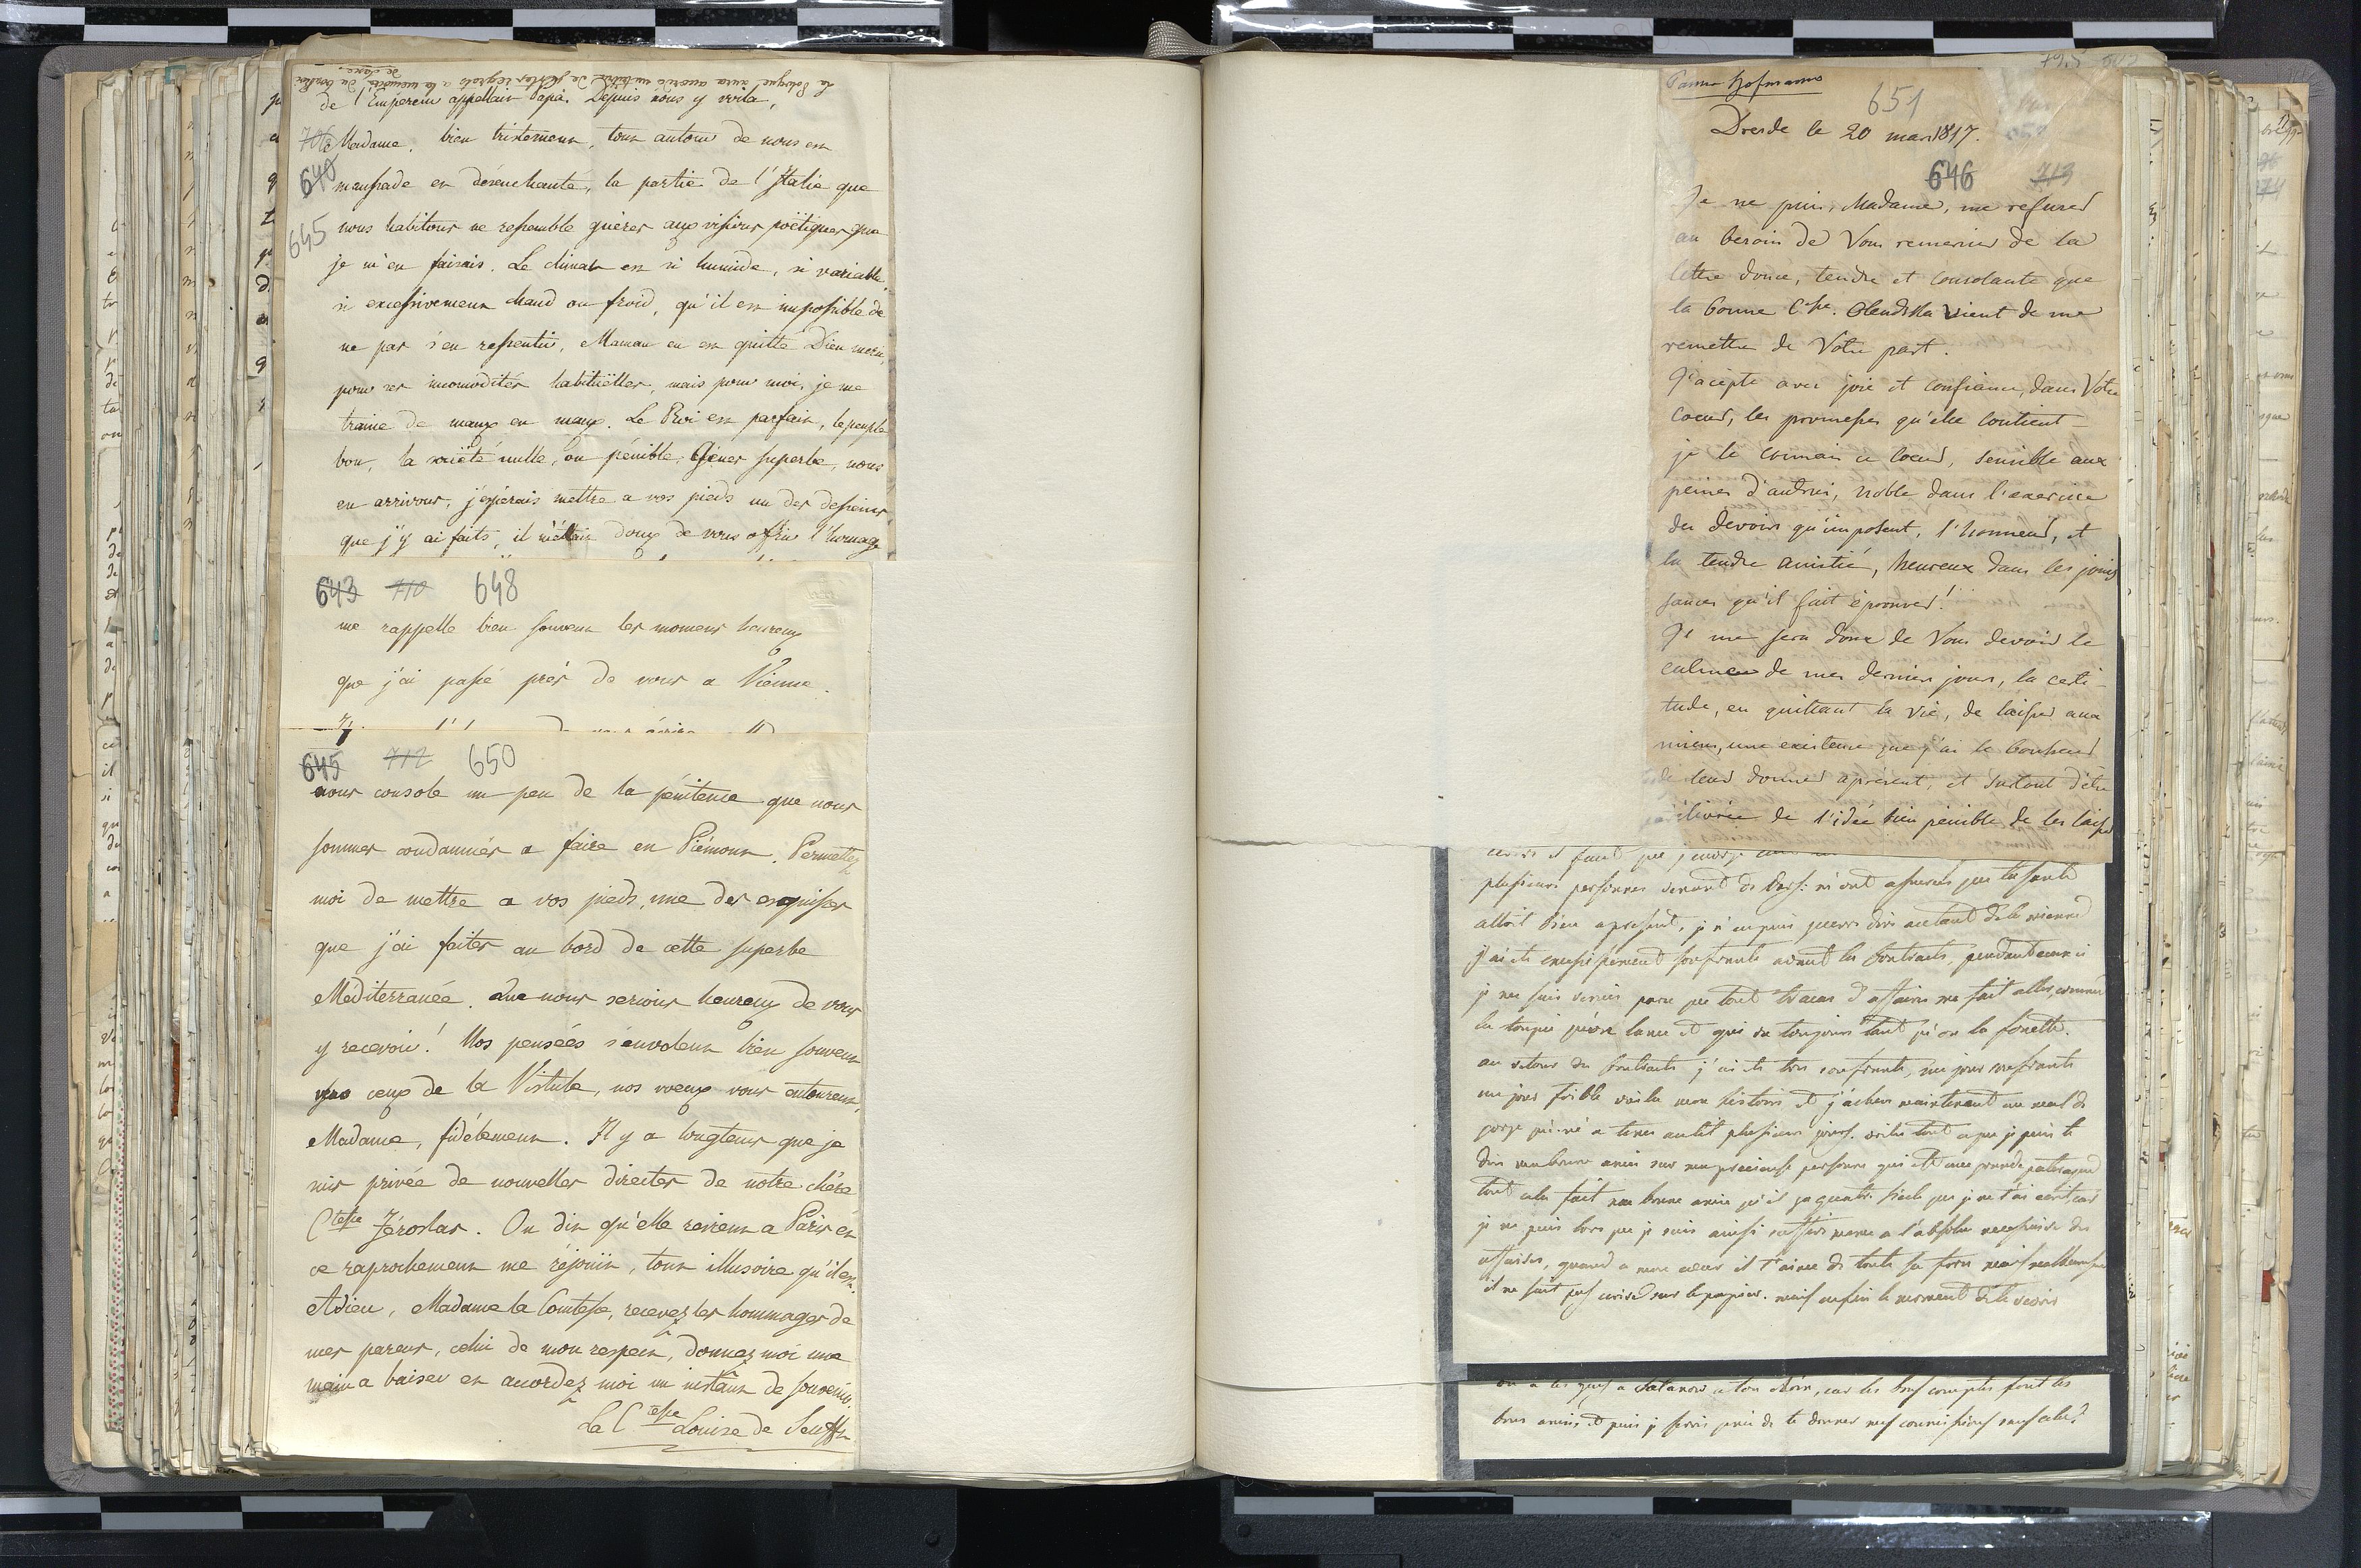 La Pologne aura accordé de justes regrets a la mémoire du
de Saxe.
de l'Empereur appellait Papa. Depuis nous y voila,
706
Madame, bien tristement, tout autour de nous est
640
maussade et désenchanté, la partie de l'Italie que
645
nous habitons ne ressemble guères aux visions poëtiques que
je m'en faisais. Le climat est si humide, si variable,
si excessivement chaud ou froid, qu'il est impossible de
ne pas s'en ressentir, Maman en est quitte Dieu merci,
pour ses incomodités habituëlles, mais pour moi, je me
traine de maux en maux. Le Roi est parfait, le peuple
bon, la société nulle, ou pénible, Gènes superbe, nous
en arrivons, j'espérais mettre a vos pieds un des dessins
que j'y ai faits, il m'était doux de vous offrir l'homage
643 710 648
me rappelle bien souvent les momens heureux
que j'ai passé près de vous a Vienne.
645 712 650
nous console un peu de la pénitence que nous
sommes condamnés a faire en Piémont. Permettez
moi de mettre a vos pieds, une des esquisses
que j'ai faites au bord de cette superbe
Mediterranée. Que nous serions heureux de vous
y recevoir! Nos pensées s'envolent bien souvent
vers ceux de la Vistule, nos voeux vous entourent,
Madame, fidélement. Il y a longtems que je
suis privée de nouvelles directes de notre chère
Ctesse Jéroslas. On dit qu'elle revient a Paris et
ce raprochement me réjouit, tout illusoire qu'il est.
Adieu, Madame la Comtesse, recevez les hommages de
mes parens, celui de mon respect, donnez moi une
main a baiser et accordez moi un instant de souvenir.
La Ctesse Louise de Senfft
795 642
Panna Hofmann
651
Dresde le 20 mars 1817.
646 713
Je ne puis, Madame, me refuser
au besoin de Vous remercier de la
lettre douce, tendre et consolante que
la bonne Csse. vient de me
remettre de Votre part.
J'acepte avec joie et confiance, dans Votre
coeur, les promesses qu'elle contient –
je le connais ce coeur, sensible aux
peines d'autrui, noble dans l'exercice
des devoirs qu'imposent, l'honneur, et
la tendre amitié, heureux dans les jouis
sances qu'il fait éprouver!
Il me sera doux de Vous devoir le
calme de mes derniers jours, la certi-
tude, en quittant la vie, de laisser aux
miens, une existence que j'ai le bonheur
de leur donner aprésent, et surtout d'être
délivrée de l'idée bien pénible de les laisser
plusieurs personnes venant de m'ont assuré que ta santé
alloit bien apresent, je n'en puis guerre dire autant de la mienne
j'ai été excessivement souffrante avant les Contracts, pendant ceux ci
je me suis parce que tout tracas d'affaires me fait aller, comme
la toupie qu'on lance et qui va toujours tant qu'on la fouette.
au retour des Contracts j'ai été très souffrante, un jour souffrante
un jour foible voila mon histoire et j'acheve maintenant un mal de
gorge qui m'a tenue au lit plusieurs jours. voila tout ce que je puis te
dire ma bonne amie sur ma precieuse personne qui est une grande patraque
tout cela fait ma bonne amie qu'il y a siecle que je ne t'ai ecrit car
je ne puis lors que je suis ainsi suffire meme a l'absolue necessaire des
affaires, quand a mon coeur il t'aime de toute sa force mais malheureusement
il ne sait pas ecrire sur le papier. mais enfin le moment de te revoir
car les bons comptes font les
bons amis et puis je serois